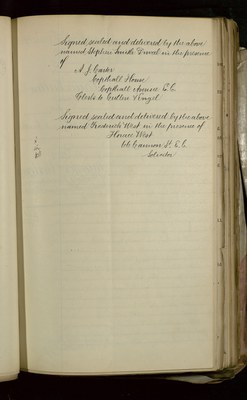 Signed sealed and delivered by the above
named Stephen Smith Duval in the presence
of
A. J. Carter
Copthall House
Copthall Avenue E.C.
Clerk to Cutler & Engel
Signed sealed and delivered by the above
named Frederick West in the presence of
Horace West
66 Cannon St. E.C.
Solicitor